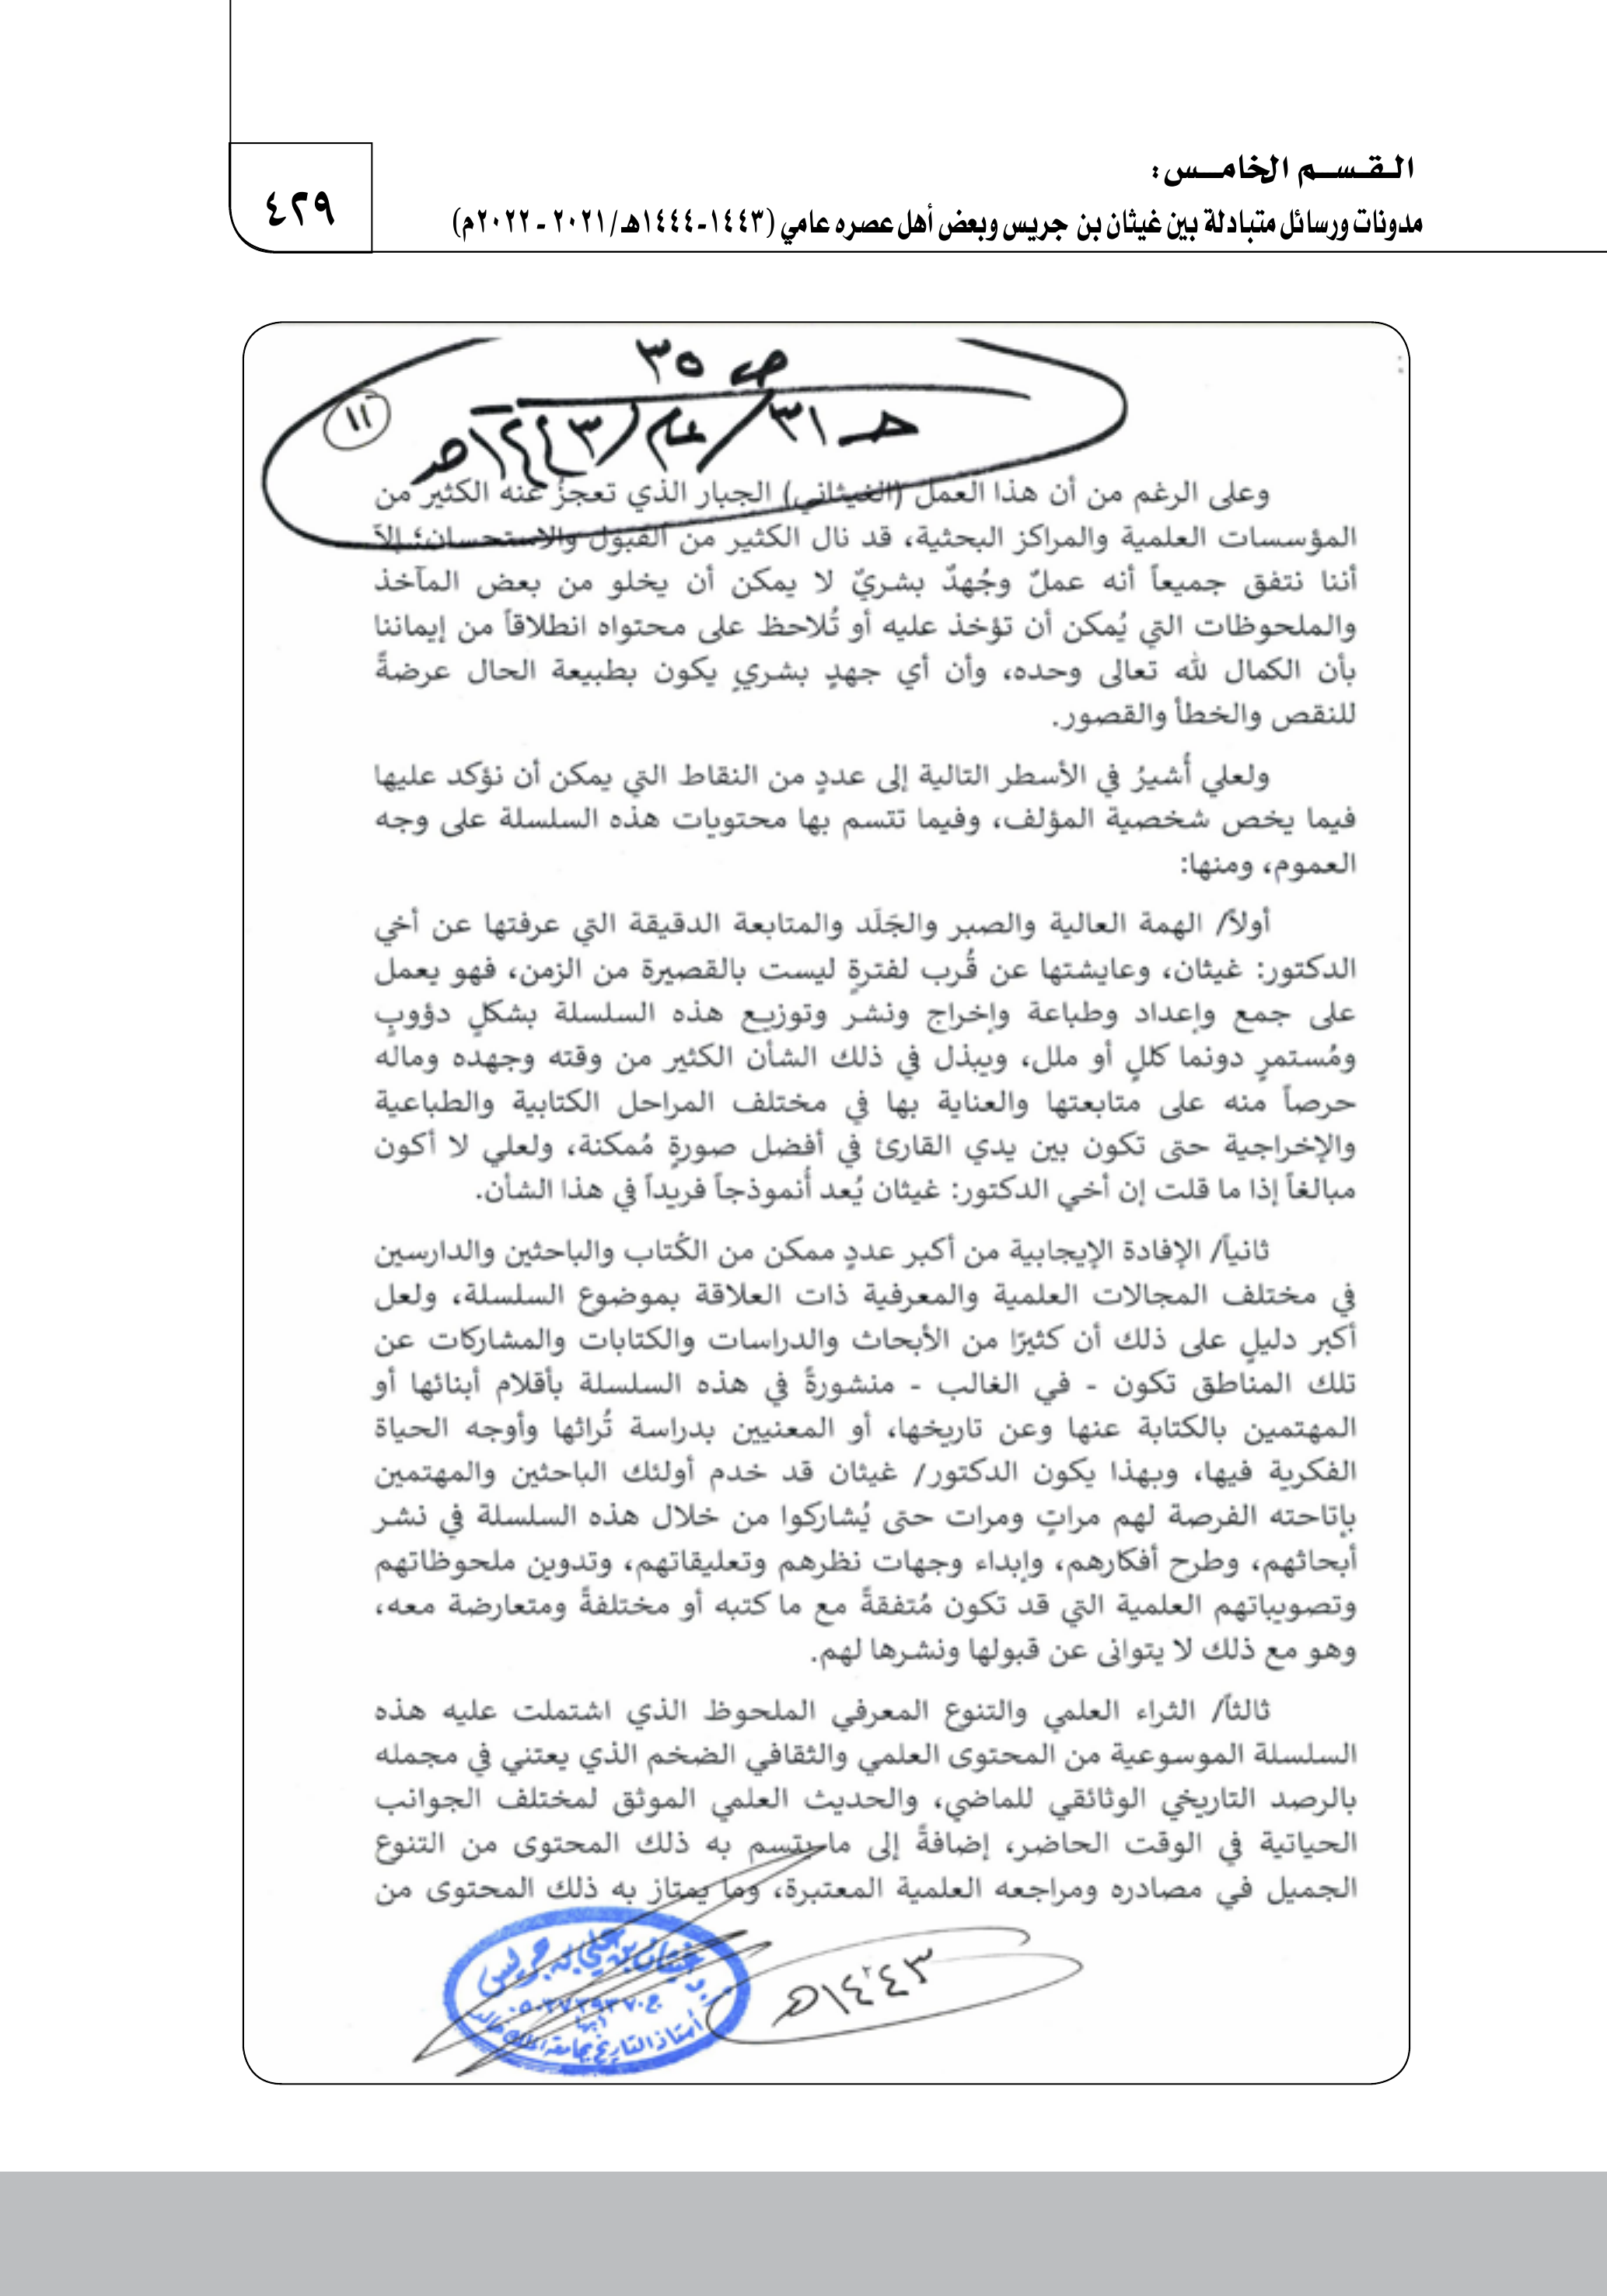 القسم الخامس:
مدونات ورسائل متبادلة بين غيثان بن جريس وبعض أهل عصره عامي (١٤٤٣-١٤٤٤هـ/٢٠٢١ - ٢٠٢٢م)
٤٢٩
ص ٣٥
جـ ٣١/عام/١٤٤٣هـ
١١
وعلى الرغم من أن هذا العمل (الغيثاني) الجبار الذي تعجزُ عنه الكثير من
المؤسسات العلمية والمراكز البحثية، قد نال الكثير من القبول والاستحسان؛ إلاّ
أننا نتفق جميعاً أنه عملٌ وجُهدٌ بشريٌ لا يمكن أن يخلو من بعض المآخذ
والملحوظات التي يُمكن أن تؤخذ عليه أو تُلاحظ على محتواه انطلاقاً من إيماننا
بأن الكمال لله تعالى وحده، وأن أي جهدٍ بشريٍ يكون بطبيعة الحال عرضةً
للنقص والخطأ والقصور.
ولعلي أُشيرُ في الأسطر التالية إلى عددٍ من النقاط التي يمكن أن نؤكد عليها
فيما يخص شخصية المؤلف، وفيما تتسم بها محتويات هذه السلسلة على وجه
العموم، ومنها:
أولاً/ الهمة العالية والصبر والجَلَد والمتابعة الدقيقة التي عرفتها عن أخي
الدكتور: غيثان، وعايشتها عن قُرب لفترةٍ ليست بالقصيرة من الزمن، فهو يعمل
على جمع وإعداد وطباعة وإخراج ونشر وتوزيع هذه السلسلة بشكلٍ دؤوبٍ
ومُستمرٍ دونما كللٍ أو ملل، ويبذل في ذلك الشأن الكثير من وقته وجهده وماله
حرصاً منه على متابعتها والعناية بها في مختلف المراحل الكتابية والطباعية
والإخراجية حتى تكون بين يدي القارئ في أفضل صورةٍ مُمكنة، ولعلي لا أكون
مبالغاً إذا ما قلت إن أخي الدكتور: غيثان يُعد أُنموذجاً فريداً في هذا الشأن.
ثانياً/ الإفادة الإيجابية من أكبر عددٍ ممكن من الكُتاب والباحثين والدارسين
في مختلف المجالات العلمية والمعرفية ذات العلاقة بموضوع السلسلة، ولعل
أكبر دليلٍ على ذلك أن كثيرًا من الأبحاث والدراسات والكتابات والمشاركات عن
تلك المناطق تكون - في الغالب - منشورةً في هذه السلسلة بأقلام أبنائها أو
المهتمين بالكتابة عنها وعن تاريخها، أو المعنيين بدراسة تُراثها وأوجه الحياة
الفكرية فيها، وبهذا يكون الدكتور/ غيثان قد خدم أولئك الباحثين والمهتمين
بإتاحته الفرصة لهم مراتٍ ومرات حتى يُشاركوا من خلال هذه السلسلة في نشر
أبحاثهم، وطرح أفكارهم، وإبداء وجهات نظرهم وتعليقاتهم، وتدوين ملحوظاتهم
وتصويباتهم العلمية التي قد تكون مُتفقةً مع ما كتبه أو مختلفةً ومتعارضة معه،
وهو مع ذلك لا يتوانى عن قبولها ونشرها لهم.
ثالثاً/ الثراء العلمي والتنوع المعرفي الملحوظ الذي اشتملت عليه هذه
السلسلة الموسوعية من المحتوى العلمي والثقافي الضخم الذي يعتني في مجمله
بالرصد التاريخي الوثائقي للماضي، والحديث العلمي الموثق لمختلف الجوانب
الحياتية في الوقت الحاضر، إضافةً إلى ما يتسم به ذلك المحتوى من التنوع
الجميل في مصادره ومراجعه العلمية المعتبرة، وما يمتاز به ذلك المحتوى من
١٤٤٣هـ
أ.د غيثان بن علي بن جريس
أبها
أستاذ التاريخ بجامعة الملك خالد